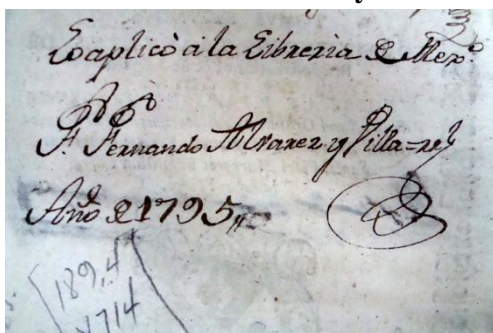 Lo aplicò à la Libreria de Mexº
Pº Fº Fernando Alvarez y Villa=rel
Año de 1795,,
189,4
1714